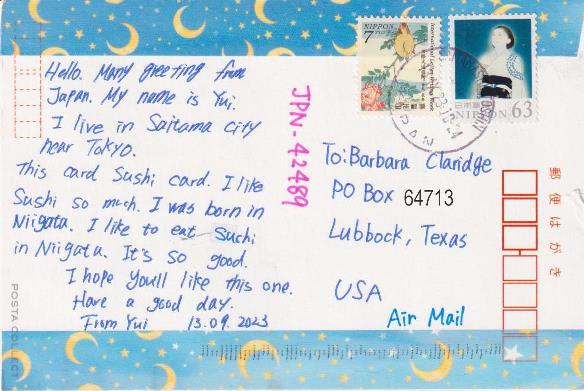 Hello. Many greeting from
Japan. My name is Yui.
I live in Saitama city
near Tokyo.
This card Sushi card. I like
Sushi so much. I was born in
Niigata. I like to eat Suchi
in Niigata. It's so good.
I hope youll like this one.
Have a good day.
From Yui 13.09.2023
JPN-42489
NIPPON
7
日本郵便
日本郵便
NIPPON 63
To: Barbara Claridge
PO Box 64713
Lubbock, Texas
USA
Air Mail
郵便はがき
POSTA COLLECT